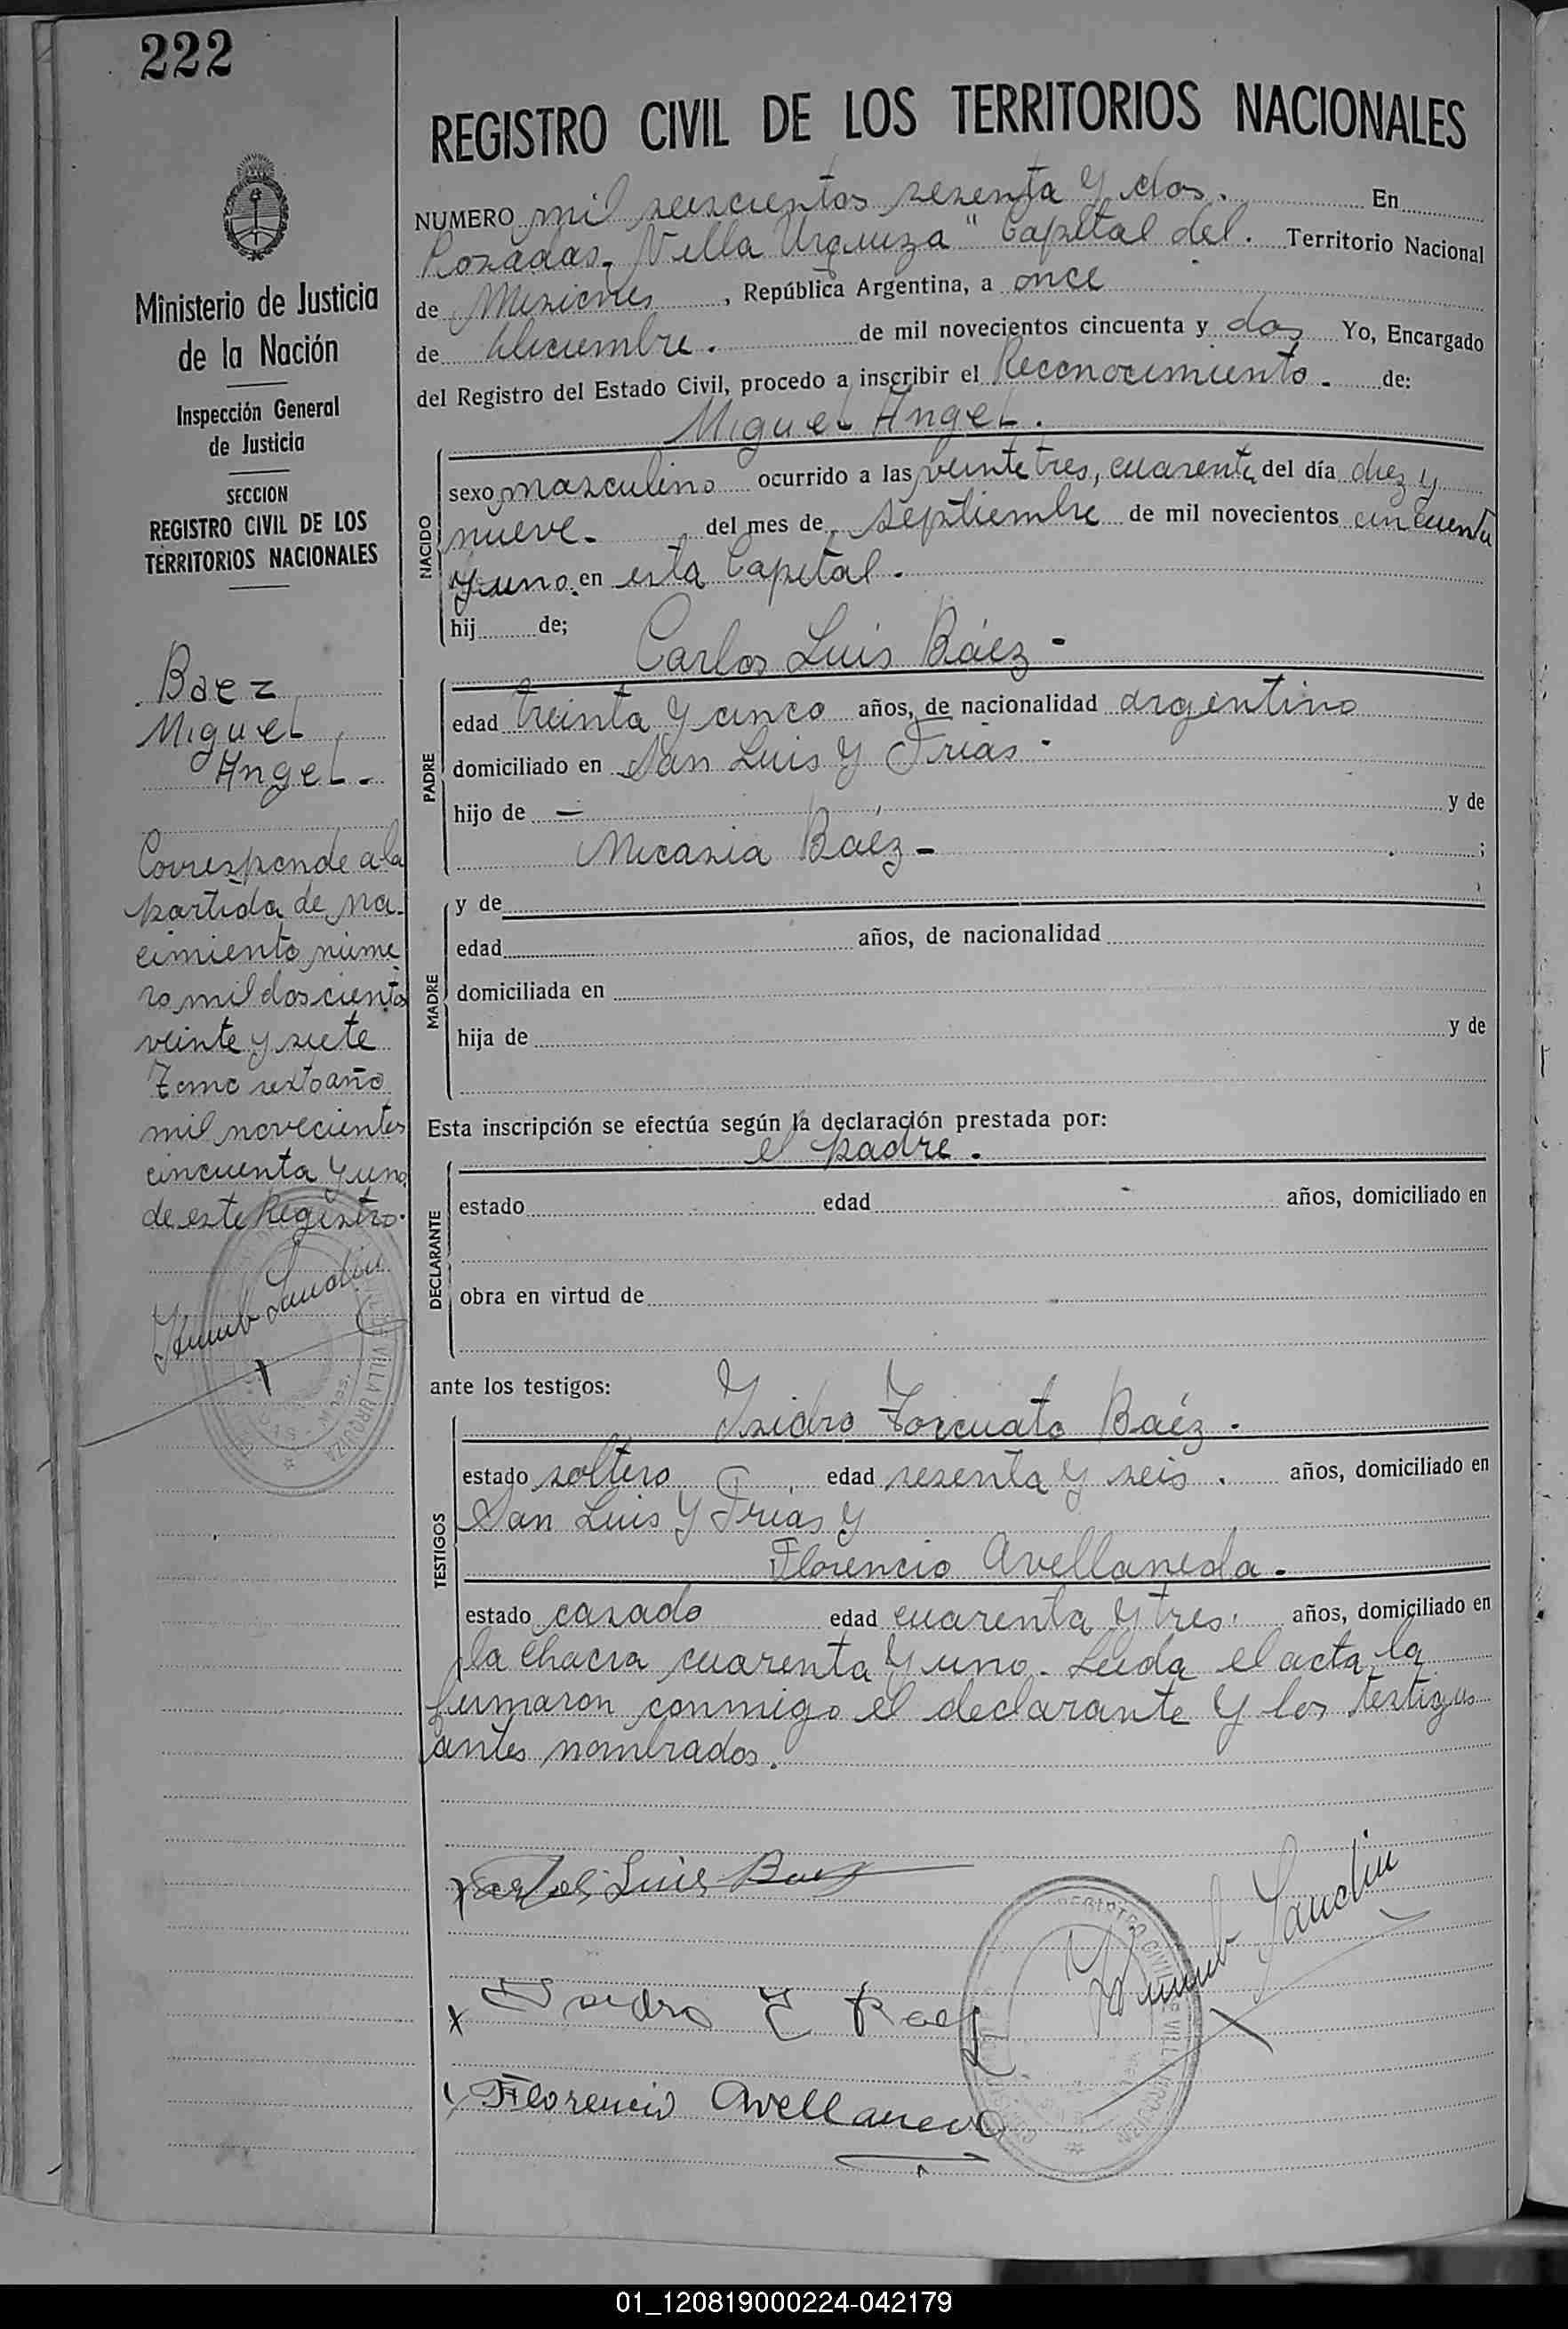 222
Ministerio de Justicia
de la Nación
Inspección General
de Justicia
SECCION
REGISTRO CIVIL DE LOS
TERRITORIOS NACIONALES
Baez
Miguel
Angel.-
Corresponde a la
partida de na-
cimiento núme
ro mil doscientos
veinte y siete
Tomo sexto año
mil novecientos
cincuenta y uno
de este Registro.
VILLA URQUIZA
REGISTRO CIVIL DE LOS TERRITORIOS NACIONALES
NUMERO mil seiscientos sesenta y dos. En
Posadas, Villa Urquiza" Capital del. Territorio Nacional
de Misiones, República Argentina, a once
de diciembre. de mil novecientos cincuenta y dos Yo, Encargado
del Registro del Estado Civil, procedo a inscribir el Reconocimiento. de:
Miguel Angel.
NACIDO
sexo masculino ocurrido a las veinte tres, cuarenta, del día diez y
nueve.- del mes de septiembre de mil novecientos cincuenta
y uno. en esta Capital.
hij de;
Carlos Luis Báez -
PADRE
edad treinta y cinco años, de nacionalidad argentino
domiciliado en San Luis y Frías.
hijo de - y de
Micasia Baéz - ;
MADRE
y de
edad años, de nacionalidad
domiciliada en
hija de y de
Esta inscripción se efectúa según la declaración prestada por:
el padre.
DECLARANTE
estado edad años, domiciliado en
obra en virtud de
ante los testigos:
Isidro Torcuato Baéz.
TESTIGOS
estado soltero edad sesenta y seis. años, domiciliado en
San Luis y Frías y
Florencio Avellaneda.
estado casado edad cuarenta y tres. años, domiciliado en
la chacra cuarenta y uno. Leida el acta, la
firmaron conmigo el declarante y los testigos
antes nombrados.
Carlos Luis Baez
Isidro T Baez
Florencio Avellaneda
01_120819000224-042179